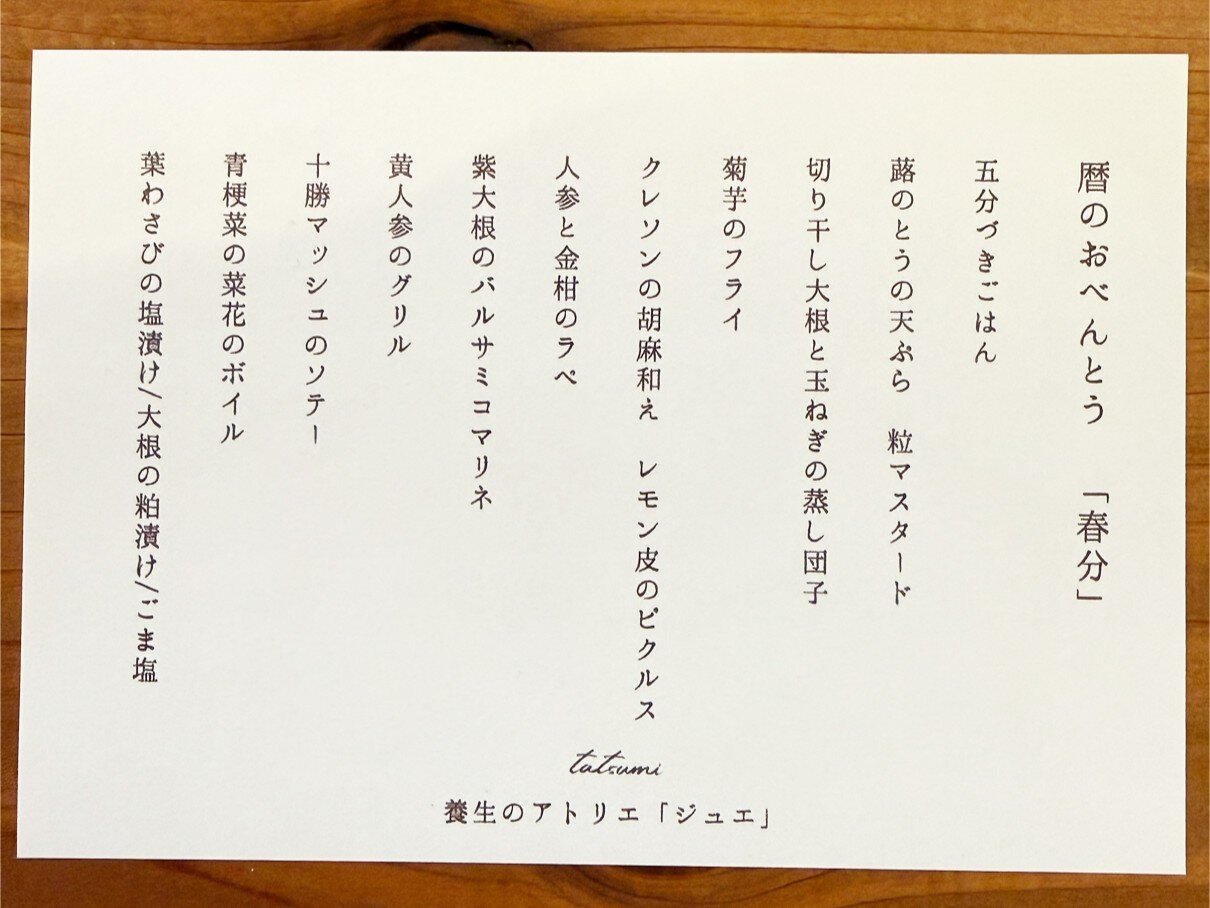 暦のおべんとう　「春分」
五分づきごはん
蕗のとうの天ぷら　粒マスタード
切り干し大根と玉ねぎの蒸し団子
菊芋のフライ
クレソンの胡麻和え　レモン皮のピクルス
人参と金柑のラペ
紫大根のバルサミコマリネ
黄人参のグリル
十勝マッシュのソテー
青梗菜の菜花のボイル
葉わさびの塩漬け/大根の粕漬け/ごま塩
tatsumi
養生のアトリエ「ジュエ」